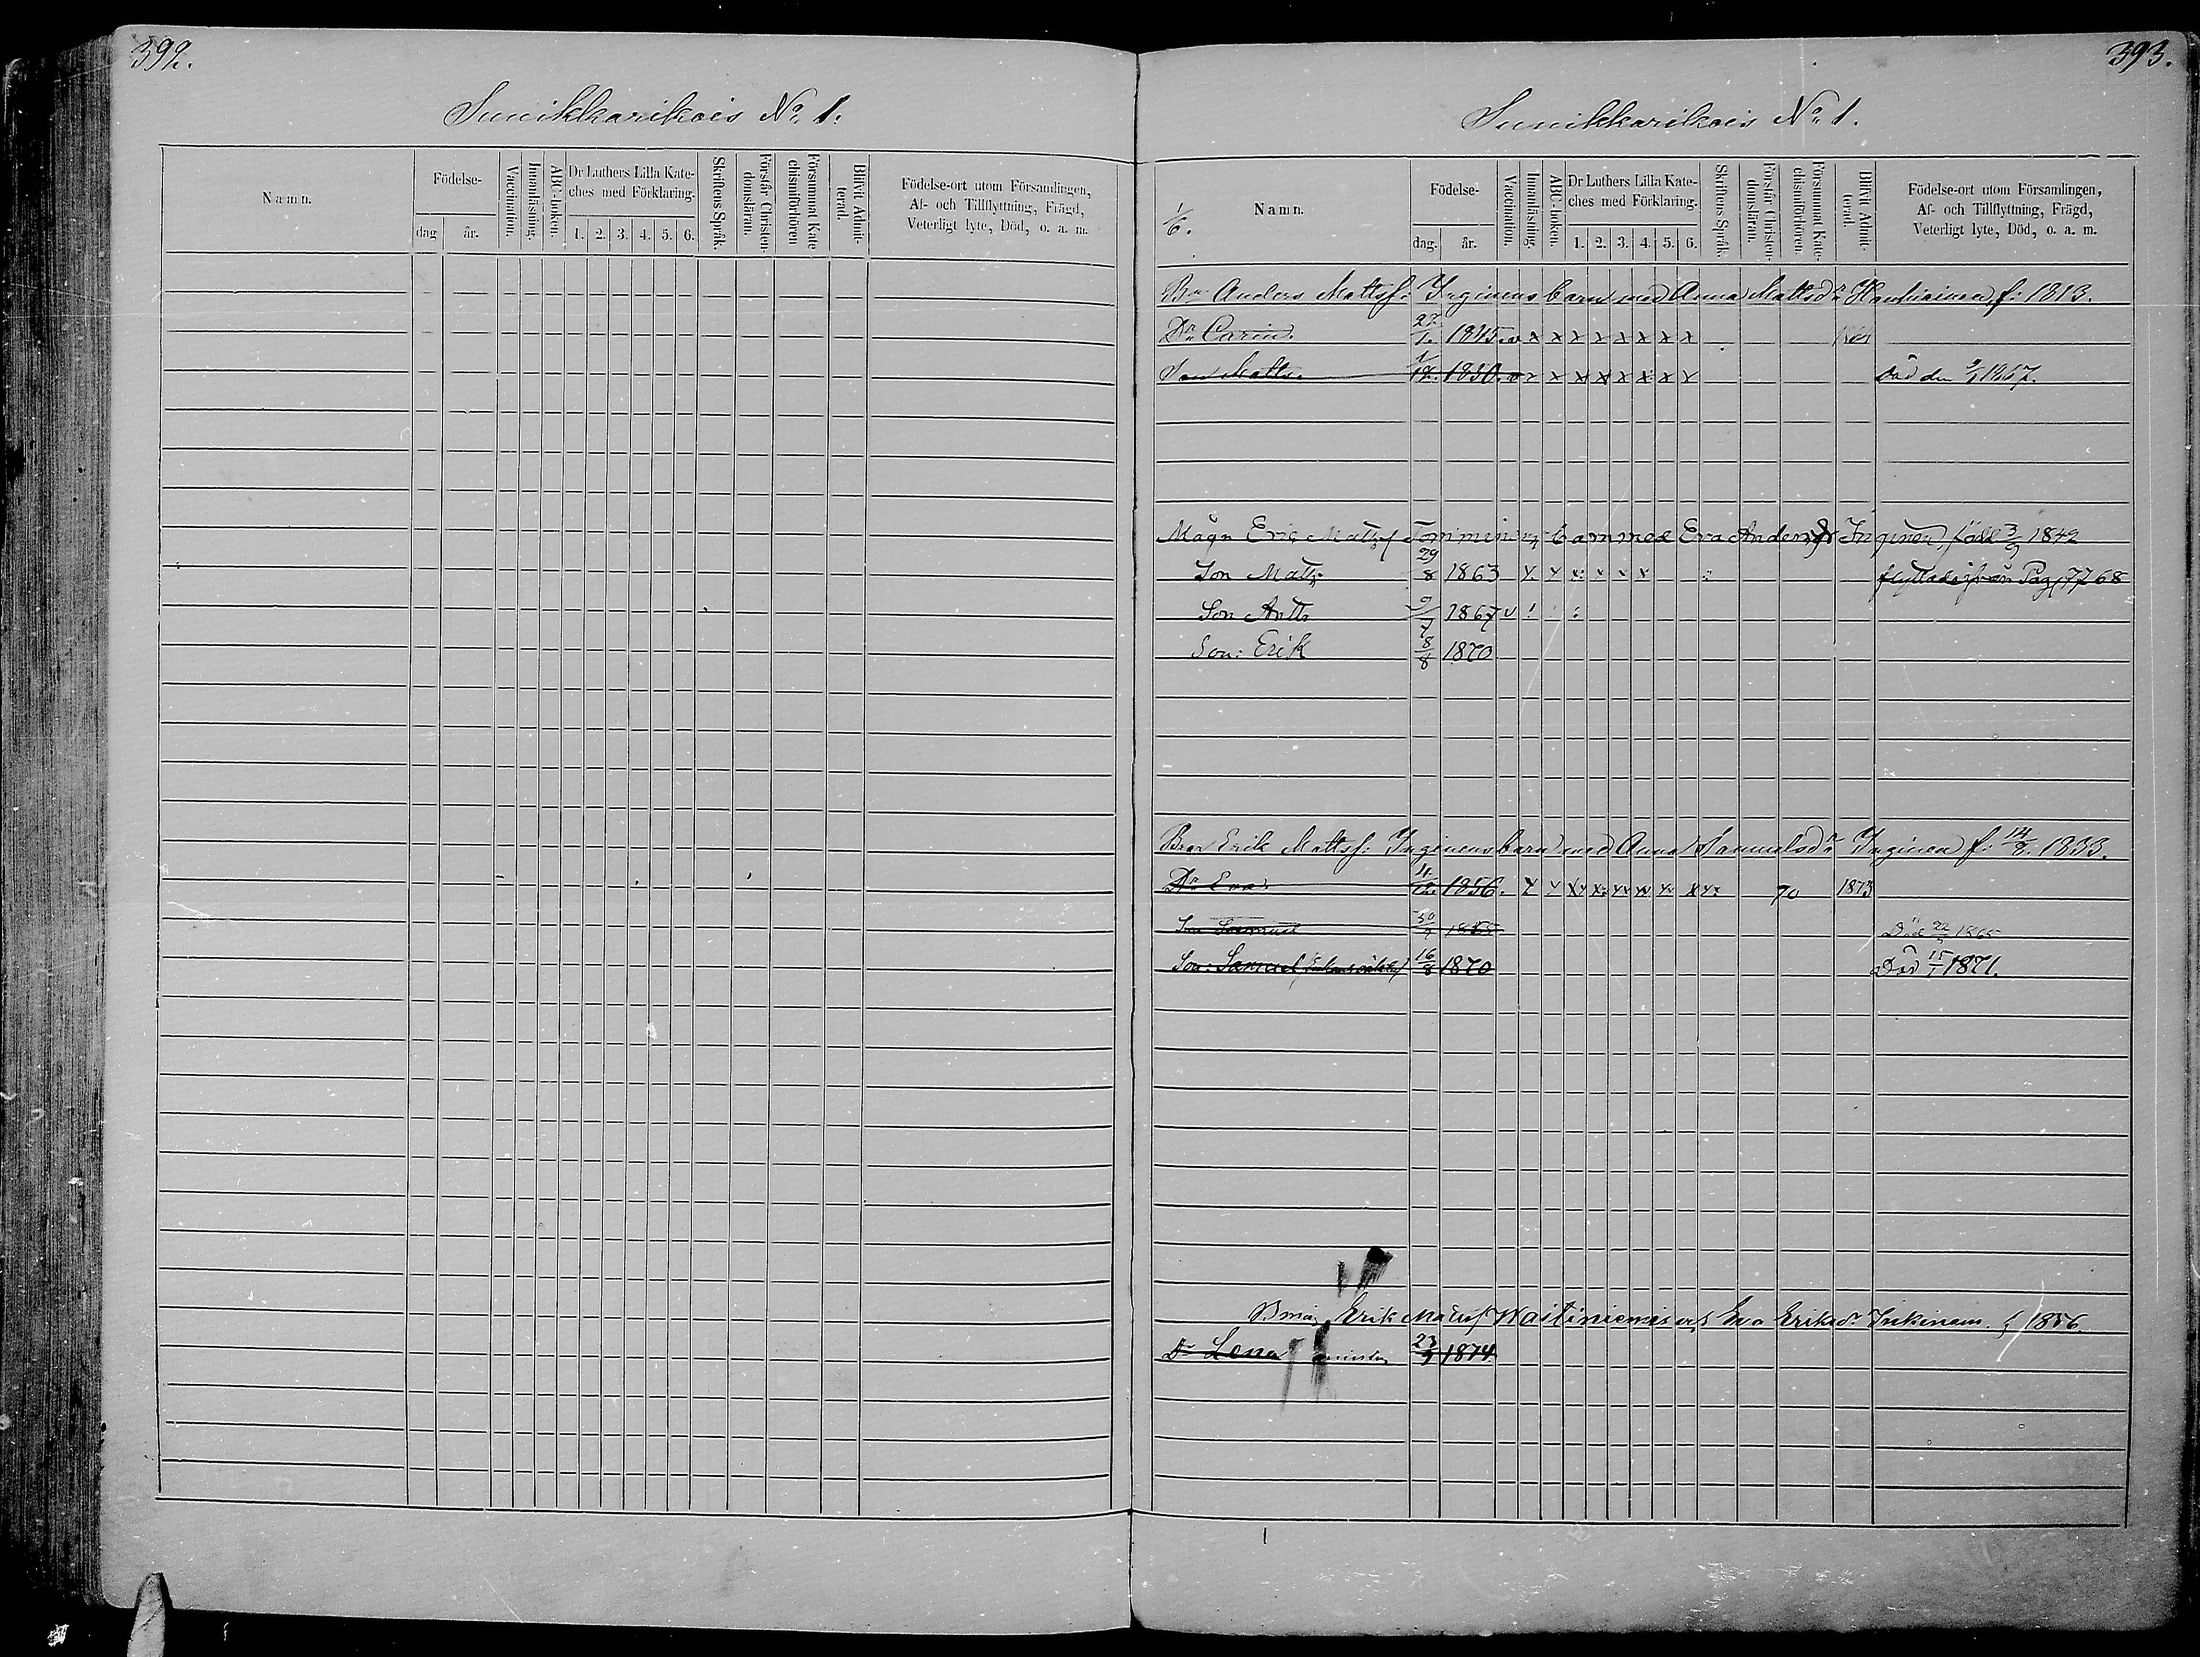 392.
Suuikkarikois No 1.
Namn.
Födelse-
dag
år.
Vaccination.
Innanläsning.
ABC-boken.
Dr Luthers Lilla Kate-
ches med Förklaring.
1. 2. 3. 4. 5. 6.
Skriftens Språk.
Förstår Christen-
domsläran.
Försummat Kate-
chismiförhören
Blifvit Admit-
terad.
Födelse-ort utom Församlingen,
Af- och Tillflyttning, Frägd,
Veterligt lyte, Död, o. a. m.
393.
Suuikkarikois No 1.
1/6.
Namn.
Födelse-
dag.
år.
Vaccination.
Innanläsning.
ABC-boken.
Dr Luthers Lilla Kate-
ches med Förklaring.
1. 2. 3. 4. 5. 6.
Skriftens Språk.
Förstår Christen-
domsläran.
Försummat Kate-
chismiförhören.
Blifvit Admit-
terad.
Födelse-ort utom Församlingen,
Af- och Tillflyttning, Frägd,
Veterligt lyte, Död, o. a. m.
Bn Anders Mattsf: Inginens barn med Anna Mattsdr f: 1813.
Dr Carin. 22/1. 1845. v x x x x x x x x 1861
Son Matts. 1850. v x x x x x x x x Död den 1867.
Mågn Eric Matts Tomminins barn med Eva Andersdr Inginen, född 3/9 1842
Son Matts 29/8 1863 x x x x x x flyttade ifrån Pag 77 68
Son Antts 9/7 1867 v
Son: Erik 8/8 1870
Bror Erik Mattsf: Inginens barn med Anna Samuelsdr Inginen f: 14/8. 1833.
Dr Eva 4/12. 1856. 70 1873
Son Samuel 30/ Död 22/ 1865
Son: Samuel 16/8 1870 Död 15/1 1871.
Erik Matsf Waitiniemis o. h. Eva Eriksdr Inkinen f 1856.
Dr Lena 23/9 1874